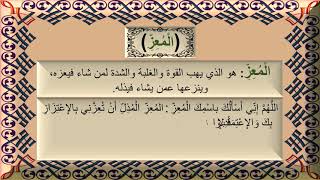 (الْمُعِزّ)
الْمُعِزّ: هو الذي يهب القوة والغلبة والشدة لمن شاء فيعزه،
وينزعها عمن يشاء فيذله.
اللَّهُمَّ إِنِّي أَسْأَلُكَ بِاسْمِكَ الْمُعِزّ : الْمُعِزّ الْمُذِلّ أَنْ تُعِزَّنِي بِالِاعْتِزَازِ
بِكَ